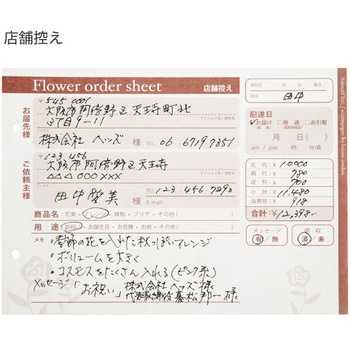 店舗控え
Flower order sheet 店舗控え
年 月 日
お届先様
〒545 0001
大阪市阿倍野区天王寺町北
3丁目9-11
株式会社 ヘッズ 様
TEL 06 6719 7351
担当
田中
配達日
お届け 発送 お引取
月 日( )
am / pm 時 分
ご依頼主様
〒123 456
大阪市阿倍野区天王寺
△△ 〇〇〇 ×××
田中愛美 様
TEL 123 456 7890
花代 10000
700
11,480
消費税 918
合計 ¥12,398-
商品名 花束・アレンジ・鉢物・プリザ・その他( )
用途 お祝・お誕生日・お花見・お供・その他( )
メモ
・季節の花を入れた秋っぽいアレンジ
・ボリュームを大きく
・コスモスをたくさん入れる(ピンク系)
メッセージ「お祝い」株式会社ヘッズ様
代表取締役 暮松邦一様
メッセージ 有・無
領収 済・未